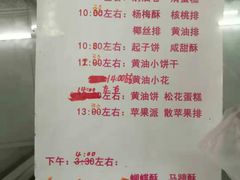 10:00左右: 杨梅酥 核桃排
椰丝排 黄油排
10:80左右: 起子饼 咸甜酥
12:00左右: 黄油小饼干
14:00 黄油小花
14:00左右: 黄油饼 松花蛋糕
13:00左右: 苹果派 散苹果排
4:00
下午: 3:30左右:
蝴蝶酥 马蹄酥